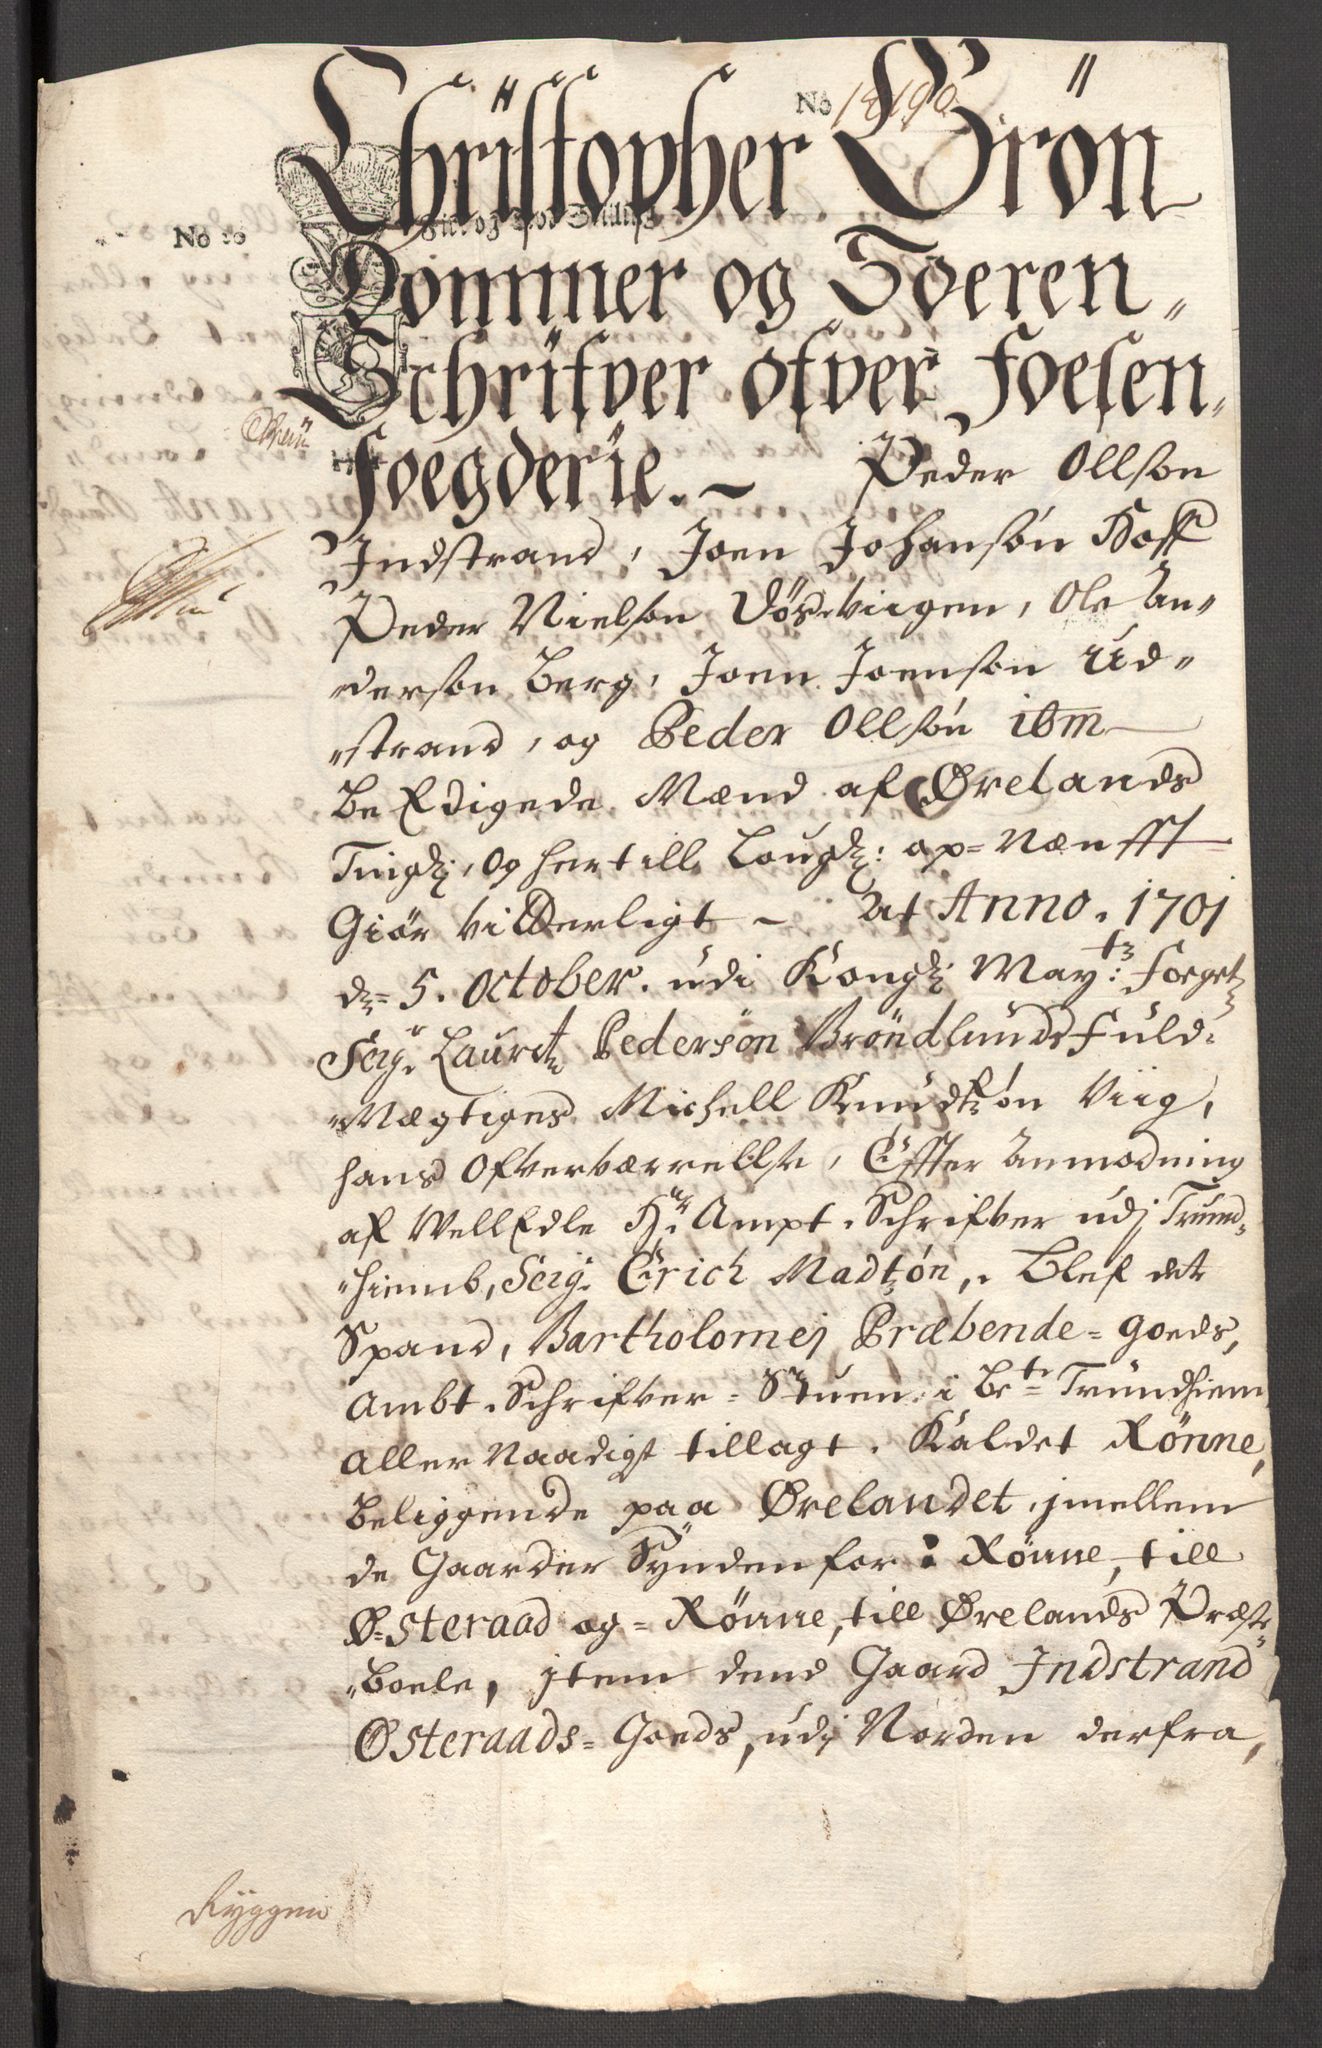 No 18190
Christopher Grön
Fiire og Tive Skilling
No 20
Dommer og Soeren„
Schrifver ofver Foesen„
Foegderie. – Peder Ollson
Indstrand, Joen Johansön Hoff
Peder Nielson Döseviigen, Ole An„
„derson Berg, Joen Joenson Ud„
„strand, og Peder Ollsön ibm
Be Edigede Mænd af Ørelands
Tingl: og hertill Laugl: op=Nænfft
Giör vitterligt – At Anno. 1701
d= 5. October. udi Kongl: May:tz Foegetz
Seig.r Lauritz Pedersön Bröndlunds Fuld=
„Mægtiges Michell Knudtzön Viig,
hans Ofverværrelse, Effter Anmodning
af Vell Edle Hr. Ampt. Schrifver udj Trund„
„hiemb, Seig. Erich Madtzön,. Blef det
Spand, Bartholomej Præbende=goeds,
Ambt. Schrifver=Stuen i Bete= Trundhiem
Aller Naadigst tillagt. Kaldet Rönne,
beliggende paa Ørelandet, jmellem
de Gaarder Synden for: Rönne, till
Ø=steraad og= Rönne, till Ørelands Præste
„boele, jtem dend Gaard Jndstrand
Østeraads=Goeds, udj Norden derfra,
Ryggen